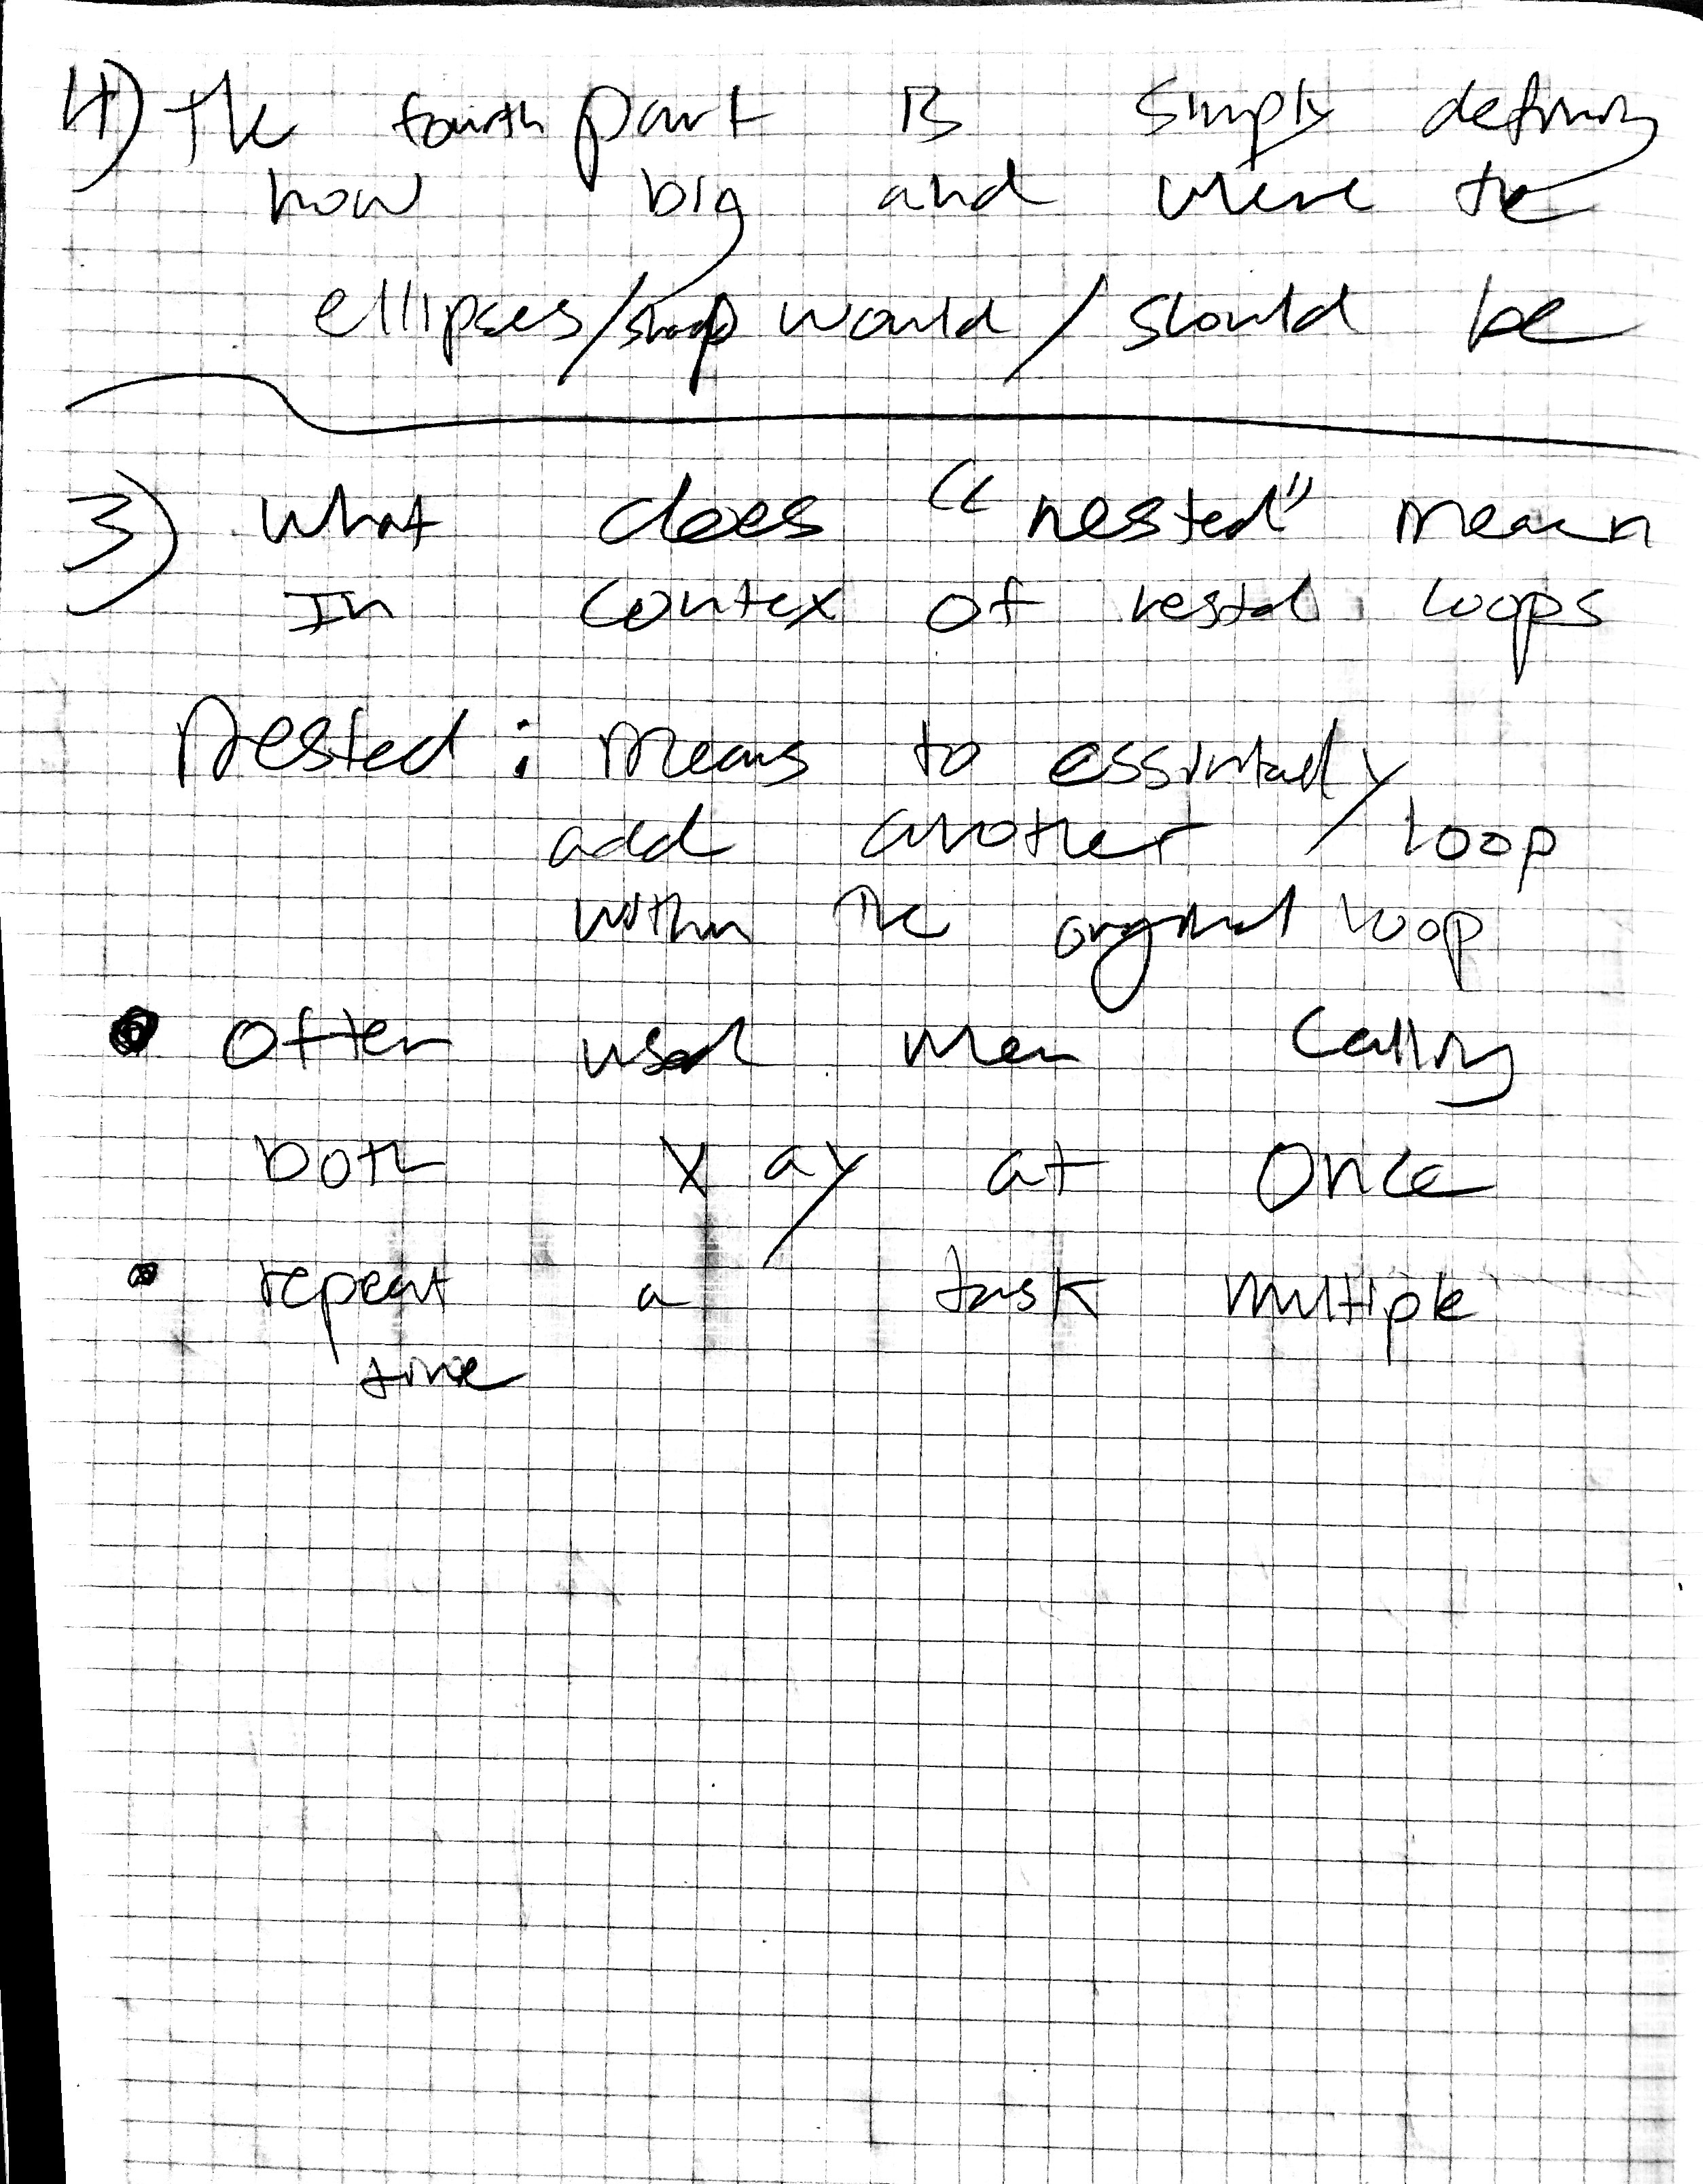 4) The fourth part is simply defining
how big and where the
ellipses/shape would / should be
3) What does "nested" mean
In contex of nested loops
Nested: means to essintially
add another loop
within the original loop
• Often used when calling
both x ay at once
• repeat a task multiple
time